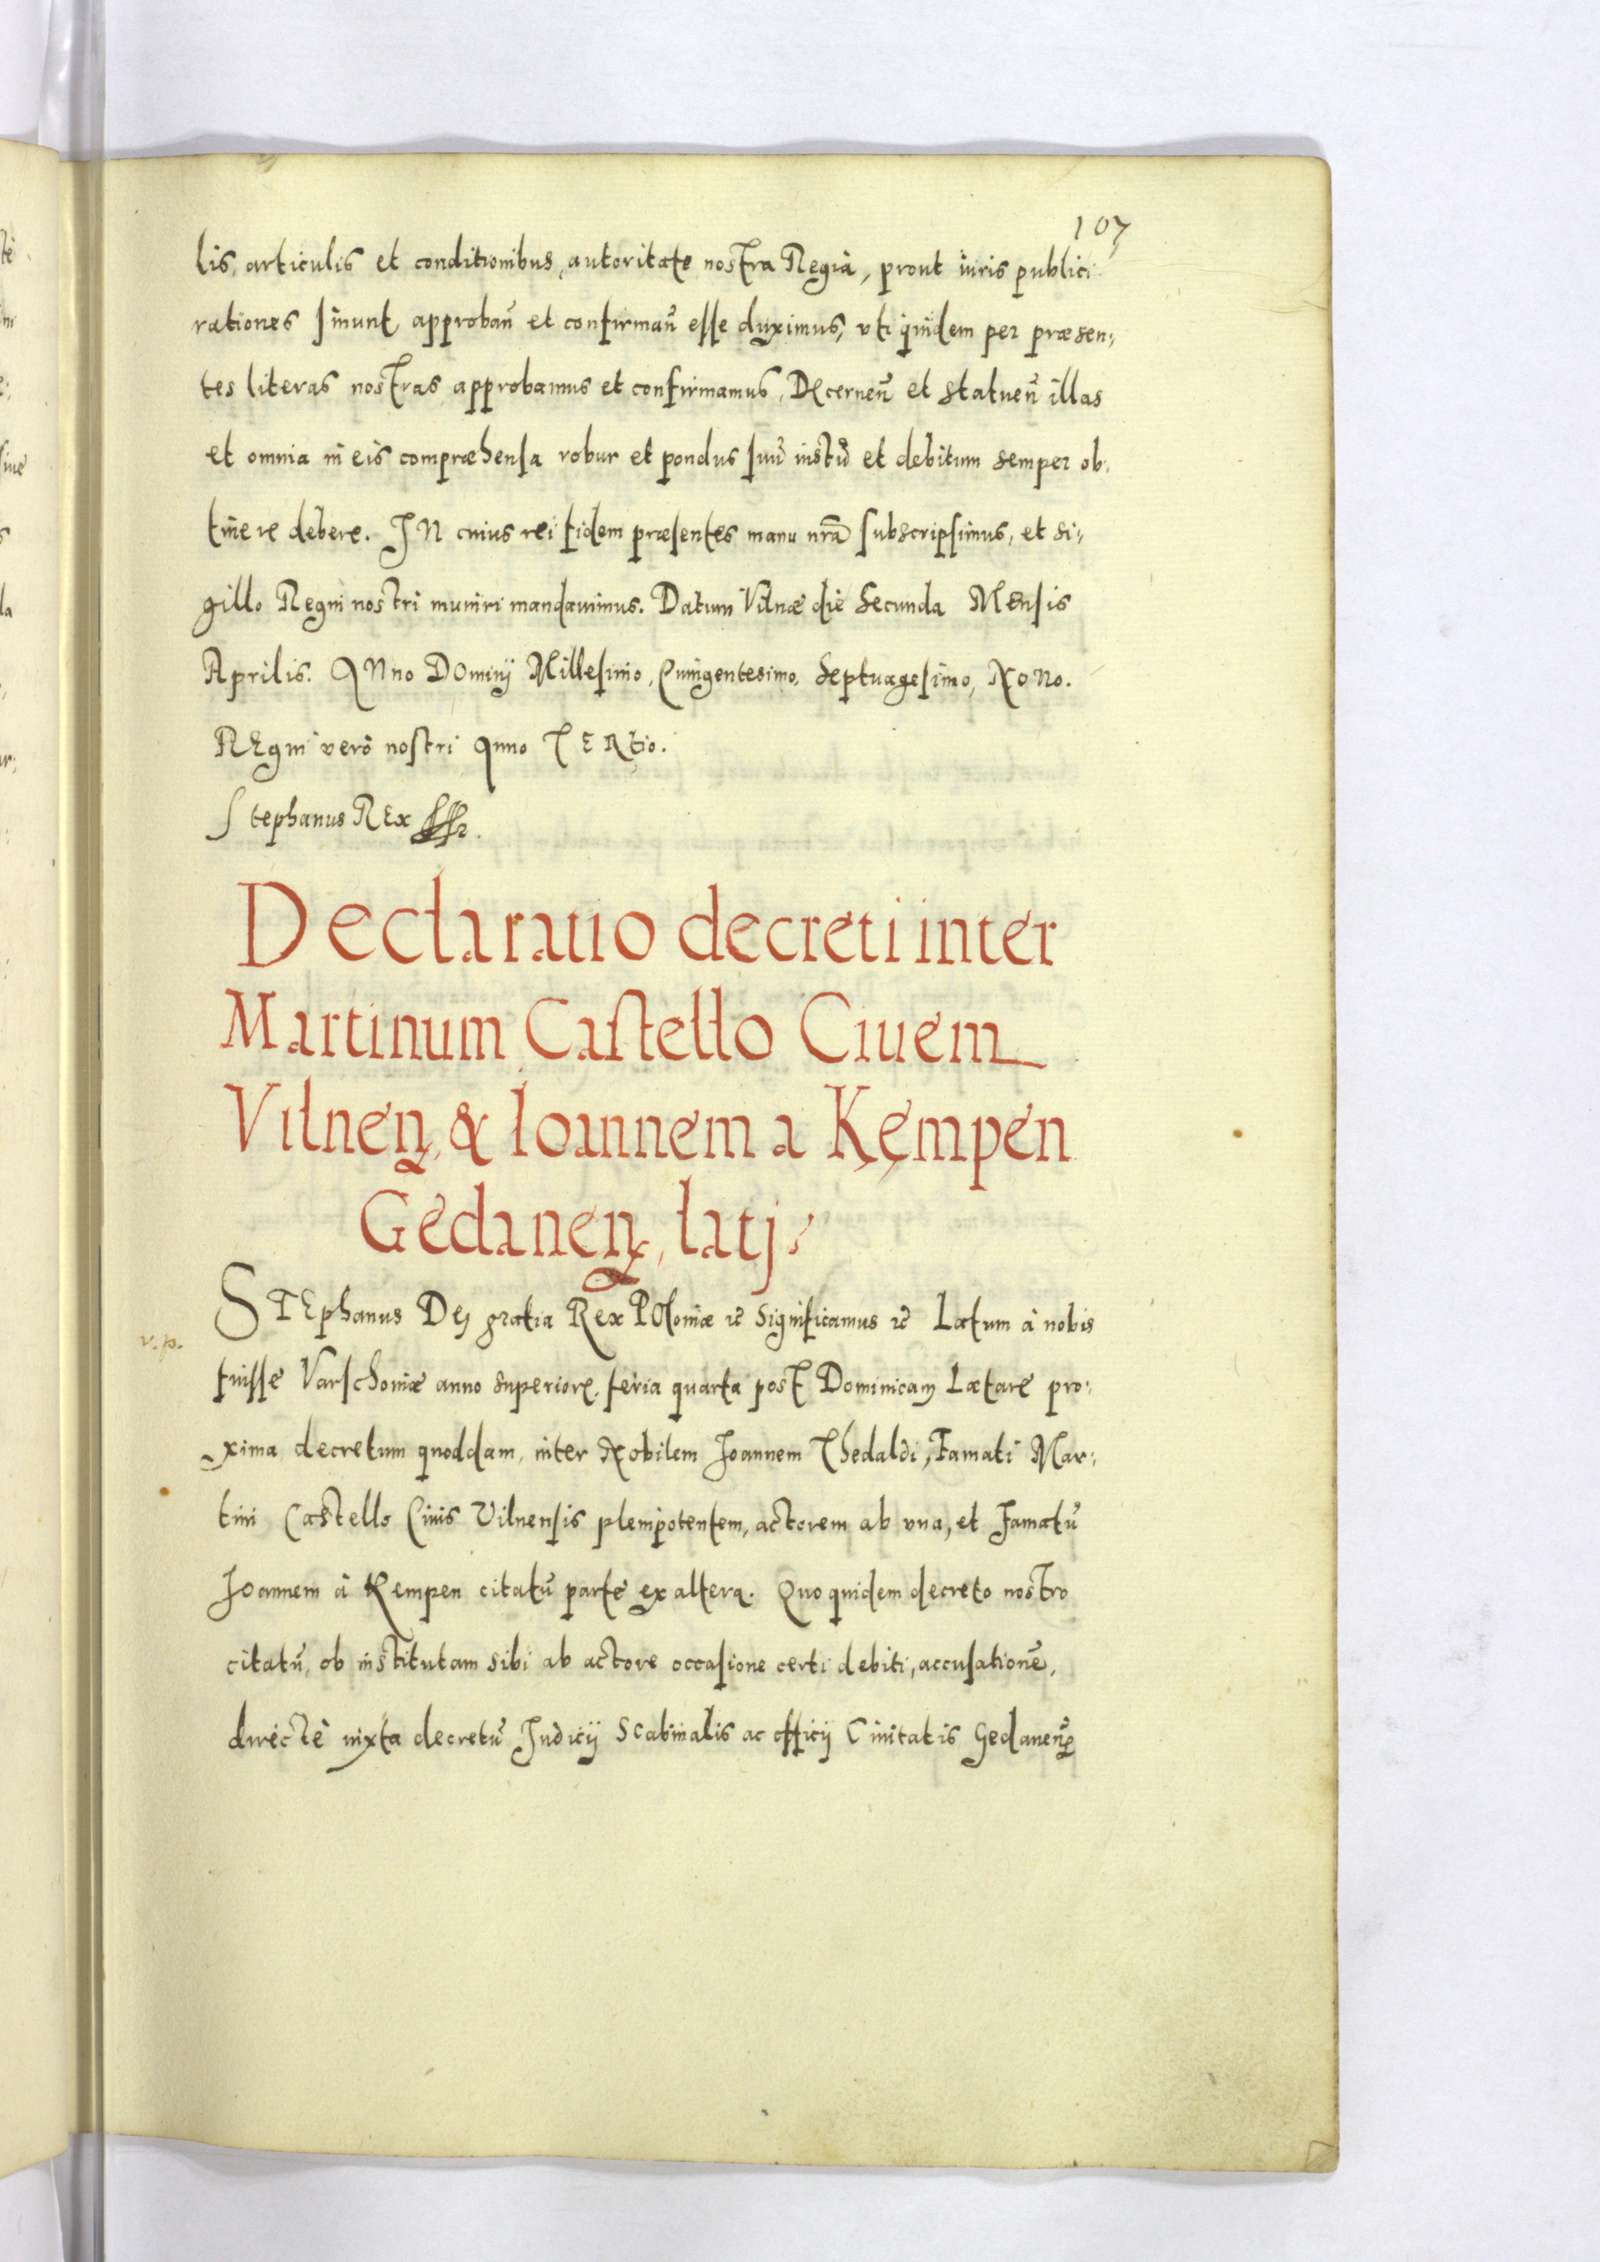 107
lis, articulis et conditionibus, autoritate nostra Regia, prout iuris publici
rationes sinunt approbañ et confirmañ esse duximus, uti quidem per præsen-
tes literas nostras approbamus et confirmamus, Decerneñ et statueñ illas
et omnia in eis compræhensa robur et pondus suũ iustũ et debitum semper ob-
tinere debere. IN cuius rei fidem præsentes manu nr̃a subscripsimus, et si-
gillo Regni nostri muniri mandauimus. Datum Vilnæ die Secunda Mensis
Aprilis. ANno DOminij Millesimo, Quingentesimo, Septuagesimo, NoNo.
REgni verò nostri Anno TERtio.
Stephanus REx
Declaratio decreti inter
Martinum Castello Ciuem
Vilnen, & Ioannem a Kempen
Gedanen, latj.
STEphanus Dej gratia Rex POloniæ etc Significamus etc Latum à nobis
v.p.
fuisse Varschoniæ anno superiore, feria quarta post Dominicam Lætare pro-
xima decretum quoddam, inter Nobilem Joannem Thedaldi, Famati Mar-
tini Castello Ciuis Vilnensis plenipotentem, actorem ab vna, et Famatũ
Joannem à Kempen citatũ parte ex altera. Quo quidem decreto nostro
citatũ, ob institutam sibi ab actore occasione certi debiti, accusationẽ,
directè iuxta decretũ Judicij Scabinalis ac officij Ciuitatis Gedaneñ